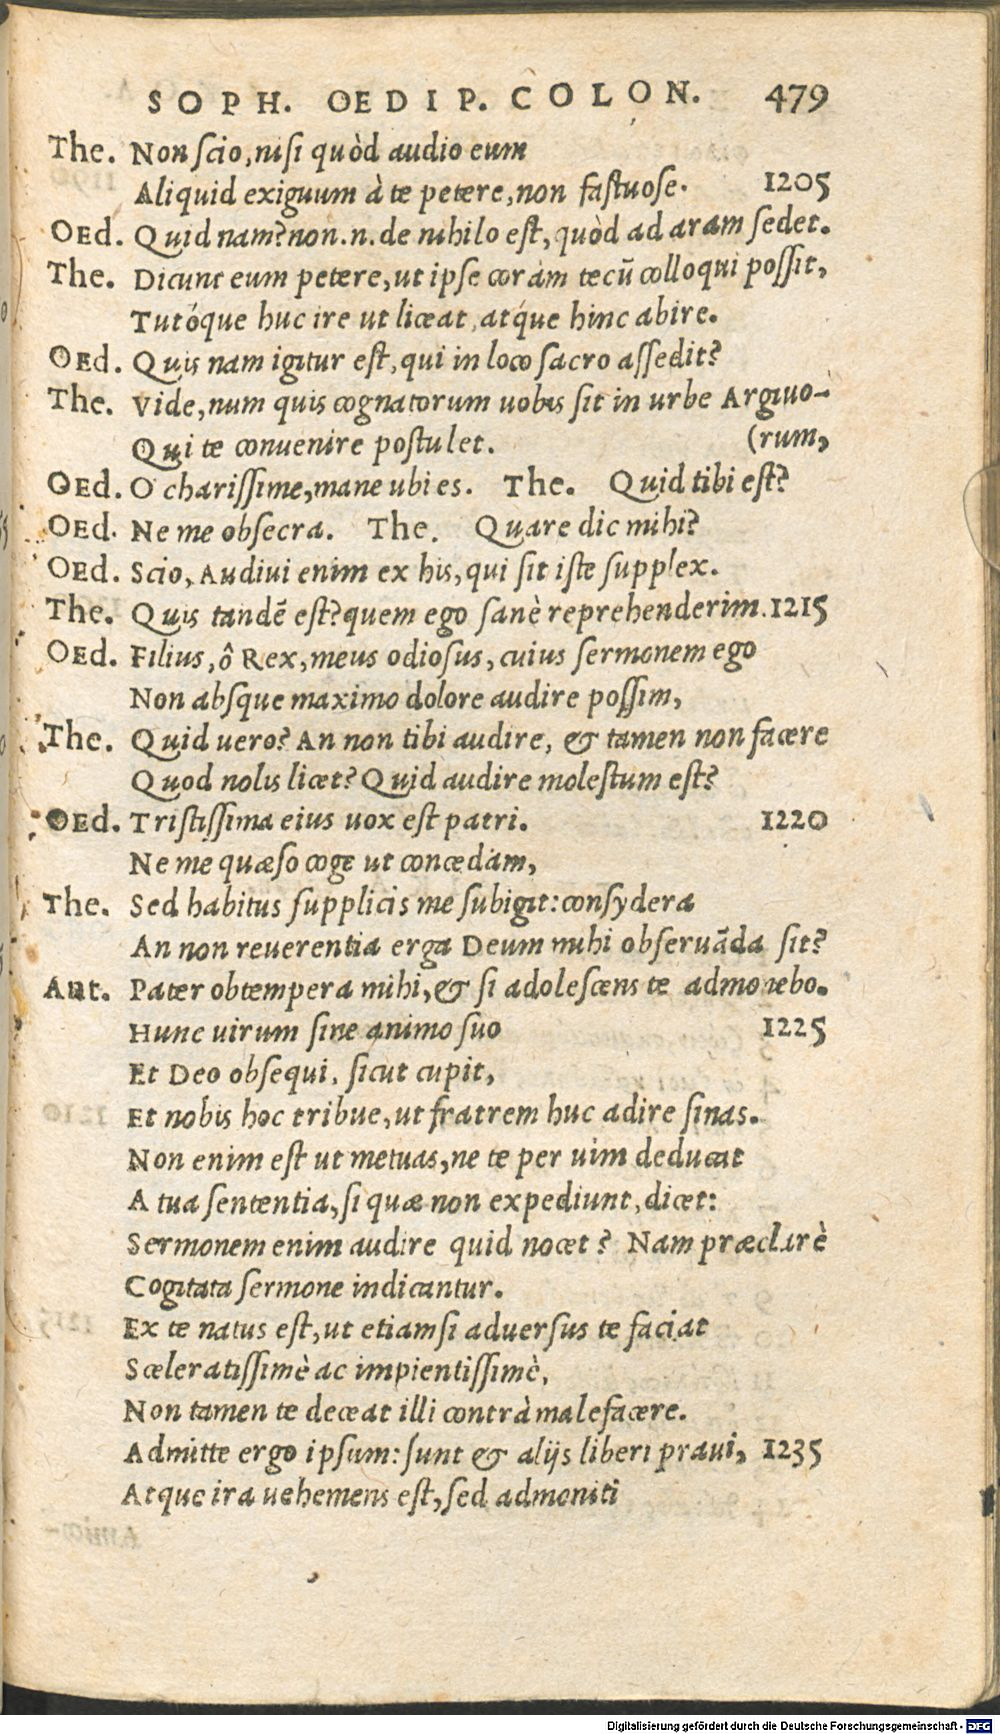 SOPH. OEDIP. COLON. 479
The. Non scio, nisi quòd audio eum
Aliquid exiguum à te petere, non fastuose. 1205
OEd. Quid nam? non .n. de nihilo est, quòd ad aram sedet.
The. Dicunt eum petere, ut ipse coràm tecū colloqui possit,
Tutóque huc ire ut liceat, atq́ue hinc abire.
OEd. Quis nam igitur est, qui in loco sacro assedit?
The. Vide, num quis cognatorum uobis sit in urbe Argiuo-
Qui te conuenire postulet. (rum,
OEd. O charissime, mane ubi es. The. Quid tibi est?
OEd. Ne me obsecra. The. Quare dic mihi?
OEd. Scio, Audiui enim ex his, qui sit iste supplex.
The. Quis tandē est? quem ego sanè reprehenderim. 1215
OEd. Filius, ô Rex, meus odiosus, cuius sermonem ego
Non absque maximo dolore audire possim,
The. Quid uero? An non tibi audire, & tamen non facere
Quod nolis licet? Quid audire molestum est?
OEd. Tristissima eius uox est patri. 1220
Ne me quæso coge ut concedam,
The. Sed habitus supplicis me subigit: consydera
An non reuerentia erga Deum mihi obseruāda sit?
Ant. Pater obtempera mihi, & si adolescens te admonebo.
Hunc uirum sine animo suo 1225
Et Deo obsequi, sicut cupit,
Et nobis hoc tribue, ut fratrem huc adire sinas.
Non enim est ut metuas, ne te per uim deducat
A tua sententia, si quæ non expediunt, dicet:
Sermonem enim audire quid nocet? Nam præclarè
Cogitata sermone indicantur.
Ex te natus est, ut etiamsi aduersus te faciat
Sceleratissimè ac impientissimè,
Non tamen te deceat illi contrà malefacere.
Admitte ergo ipsum: sunt & alijs liberi praui, 1235
Atque ira uehemens est, sed admoniti
Digitalisierung gefördert durch die Deutsche Forschungsgemeinschaft - DFG